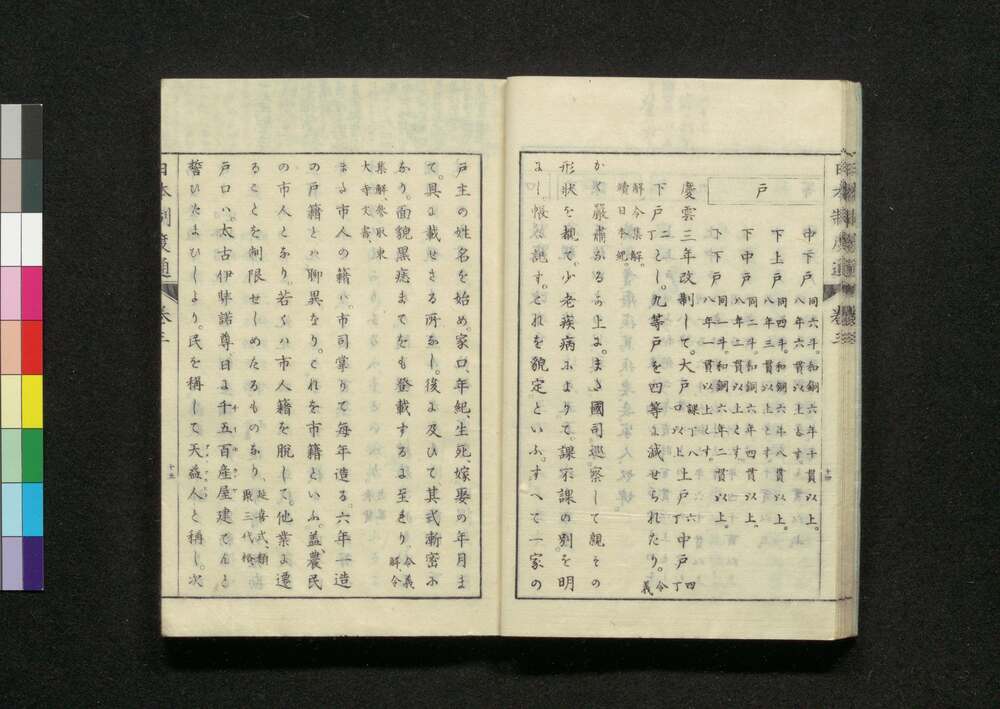 日本制度通 巻三
十四
戸
中下戸 同六斗。和銅六年十貫以上。八年六貫以上とす。
下上戸 同四斗。和銅六年八貫以上。八年三貫以上とす。
下中戸 同二斗。和銅六年四貫以上。八年二貫以上とす。
下下戸 同一斗。和銅六年二貫以上。八年一貫以上とす。
慶雲三年改制して。大戸 課丁八口以上 上戸 六丁 中戸 四丁
下戸 二丁 とし。九等戸を四等に減せられたり。令義
解、令集解、續日本紀。
かく嚴肅なるの上に。また國司巡察して親その
形状を視て。少老疾病によりて。課不課の別を明
にし。帳に記す。これを貌定といふ。すへて一家の
戸主の姓名を始め。家口、年紀、生死、嫁娶の年月ま
て。具に載せさる所なし。後に及ひて。其式漸密に
なり。面貌黒痣まてをも登載するに至れり。令義解、令
集解、參取東大寺文書、
また市人の籍ハ。市司掌りて毎年造る。六年一造
の戸籍とハ聊異なり。これを市籍といふ。蓋農民
の市人となり。若くハ市人籍を脱して。他業に遷
ることを制限せしめたるものなり、延喜式、類聚三代格、
戸口ハ。太古伊弉諾尊、日に千五百産屋建てんと
誓ひたまひしより。民を稱して天益人と稱し。次
日本制度通 巻三
十五